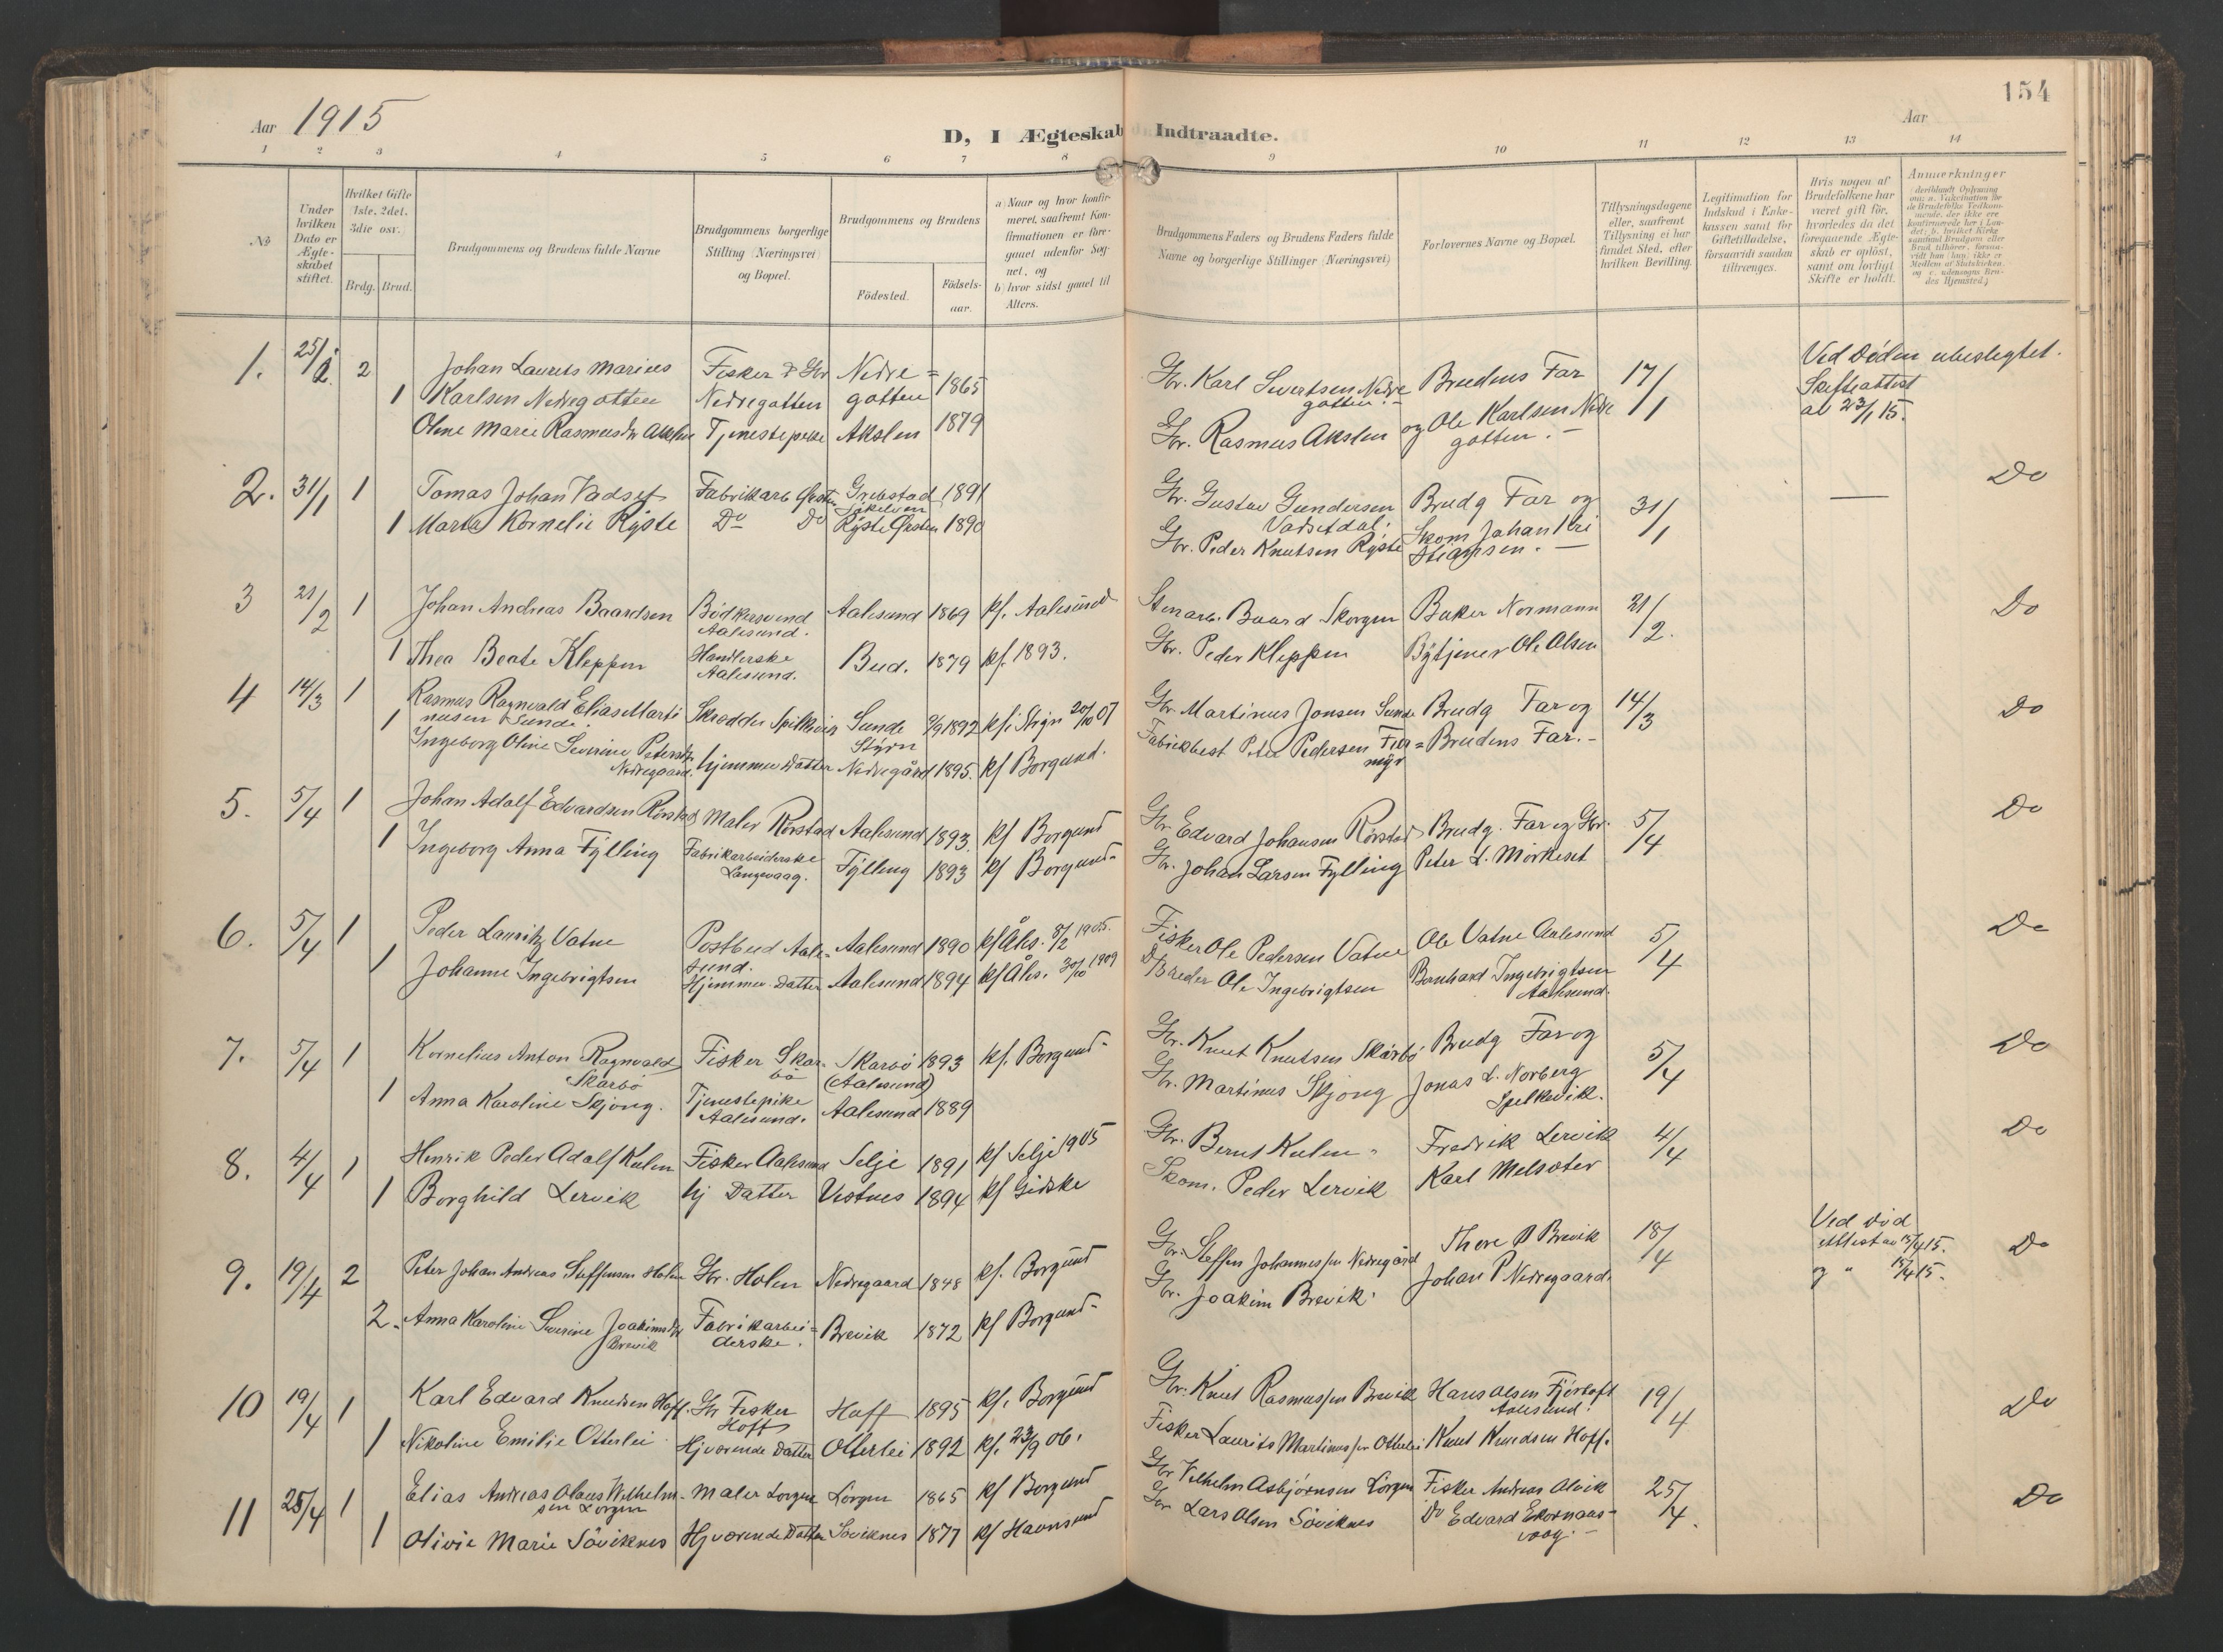 154
Aar 1915
D, I Ægteskab Indtraadte.
Aar
1 2 3 4 5 6 7 8 9 10 11 12 13 14
No
Under hvilken Dato er Ægteskabet stiftet.
Hvilket Gifte 1ste, 2det, 3die osv.
Brdg. Brud.
Brudgommens og Brudens fulde Navne
Brudgommens borgerlige Stilling (Næringsvei) og Bopæl.
Brudgommens og Brudens
Födested.
Födsels-aar.
a) Naar og hvor konfirmeret, saafremt Konfirmationen er foregaaet udenfor Sognet, og
b) hvor sidst gaaet til Alters.
Brudgommens Faders og Brudens Faders fulde Navne og borgerlige Stillinger (Næringsvei)
Forlovernes Navne og Bopæl.
Tillysningsdagene eller, saafremt Tillysning ei har fundet Sted, efter hvilken Bevilling.
Legitimation for Indskud i Enkekassen samt for Giftetilladelse, forsaavidt saadan tiltrænges.
Hvis nogen af Brudefolkene har været gift för, hvorledes da det foregaaende Ægteskab er oplöst, samt om lovligt Skifte er holdt.
Anmærkninger
1. 25/1 2 Johan Laurits Marius Fisker & Gbr Nedre=
1 Karlsen Nedregotten Nedregotten gotten 1865
Oline Marie Rasmusdtr Akslen Tjenestepike Akslen 1879
Gbr. Karl Sivertsen Nedregotten.- Brudens Far 17/1
Gbr. Rasmus Akslen og Ole Karlsen Nedregotten.-
Ved Döden ubeslegtet.
Skifteattest
av 23/1 15.
2. 31/1 1 Tomas Johan Vadset Fabrikarb Ørsten Grebstad 1891
1 Marta Kornelie Ryste Do Do Ryste Ørsten 1890
Gbr. Gustav Gundersen Vadsetdal. Brudg Far og 31/1 Do
Gbr. Peder Knutsen Ryste Skom Johan Kristiansen.-
3 21/2 1 Johan Andreas Baardsen Bödkersvend Aalesund. Aalesund 1869 kf. Aalesund
1 Thea Beate Kleppen Handlerske Aalesund. Bud. 1879 kf. 1893.
Stenarb. Baard Skorgen Baker Normann 21/2. Do
Gbr. Peder Kleppen Bytjener Ole Olsen
4 14/3 1 Rasmus Ragnvald Elias Martinusen Sunde. Skrædder Spilkevig Sunde Styrn 1892 kf i Stryn 20/10 07
1 Ingeborg Oline Severine Petersdtr Nedregaard. hjemmev Datter Nedregård 1895. kf Borgund.
Gbr. Martinus Jonsen Sunde Brudg Far og 14/3 Do
Fabrikbest Peter Pedersen Brudens Far.-
5. 5/4 1 Johan Adolf Edvardsen Rörstad Maler Rörstad Aalesund 1893. kf Borgund
1 Ingeborg Anna Fylling Fabrikarbeiderske Langevaag. Fylling 1893 kf Borgund-
Gbr. Edvard Johansen Rörstad Brudg. Far og Gbr. 5/4 Do
Gbr. Johan Larsen Fylling Peter L. Mörkeset
6. 5/4 1 Peder Lauritz Vatne Postbud Aalesund. Aalesund 1890 kf Åls. 5/2 1905.
1 Johanne Ingebrigtsen Hjemmev. Datter Aalesund 1894 kf Åls. 30/10 1909
Fisker Ole Pedersen Vatne Ole Vatne Aalesund 5/4 Do
Ole Ingebrigtsen Bernhard Ingebrigtsen Aalesund.
7. 5/4 1 Kornelius Anton Ragnvald Skarbö Fisker Skarbö Skarbö (Aalesund) 1893 kf. Borgund-
1 Anna Karoline Skjong. Tjenestepike Aalesund. Aalesund 1889
Gbr. Knut Knutsen Skarbö Brudg Far og 5/4 Do
Gbr. Martinus Skjong Jonas L. Norberg Spelkevik.
8. 4/4 1 Henrik Peder Adolf Kulen Fisker Aalesund Selje 1891 kf Selje 1905
1 Borghild Lervik hj Datter Vestnes 1894 kf Giske
Gbr. Bernt Kulen Fredrik Lervik 4/4 Do
Skom. Peder Lervik Karl Melsæter
9. 19/4 2 Peter Johan Andreas Steffensen Holen Gbr. Holen Nedregaard 1848 kf. Borgund
2. Anna Karoline Severine Joakimsdtr Brevik Fabrikarbeiderske. Brevik 1872 kf Borgund-
Gbr. Steffen Johannessen Nedregård Thore P Brevik 18/4
Gbr. Joakim Brevik. Johan P Nedregaard.
Ved död
attest av 15/4 15.
og " 15/4 15.
Do
10 19/4 1 Karl Edvard Knudsen Hoff. Gbr Fisker Hoff Hoff 1895 kf. Borgund
1 Nikoline Emilie Otterlei Hjværende Datter Otterlei 1892 kf. 23/9 06.
Gbr. Knut Rasmussen Brevik Hans Olsen Fjörtoft Aalesund. 19/4 Do
Fisker Laurits Martinussen Otterlei Knut Knudsen Hoff.
11 25/4 1 Elias Andreas Olaus Wilhelmsen Lorgen Maler Lorgen Lörgen 1865 kf Borgund
1 Olivie Marie Söviknes Hjværende Datter Söviknes 1877 kf Havnsund
Gbr Vilhelm Asbjörnsen Lörgen Fisker Andreas Alvik 25/4. Do
Gbr Lars Olsen Söviknes Do Edvard Ekornaasvaag.-